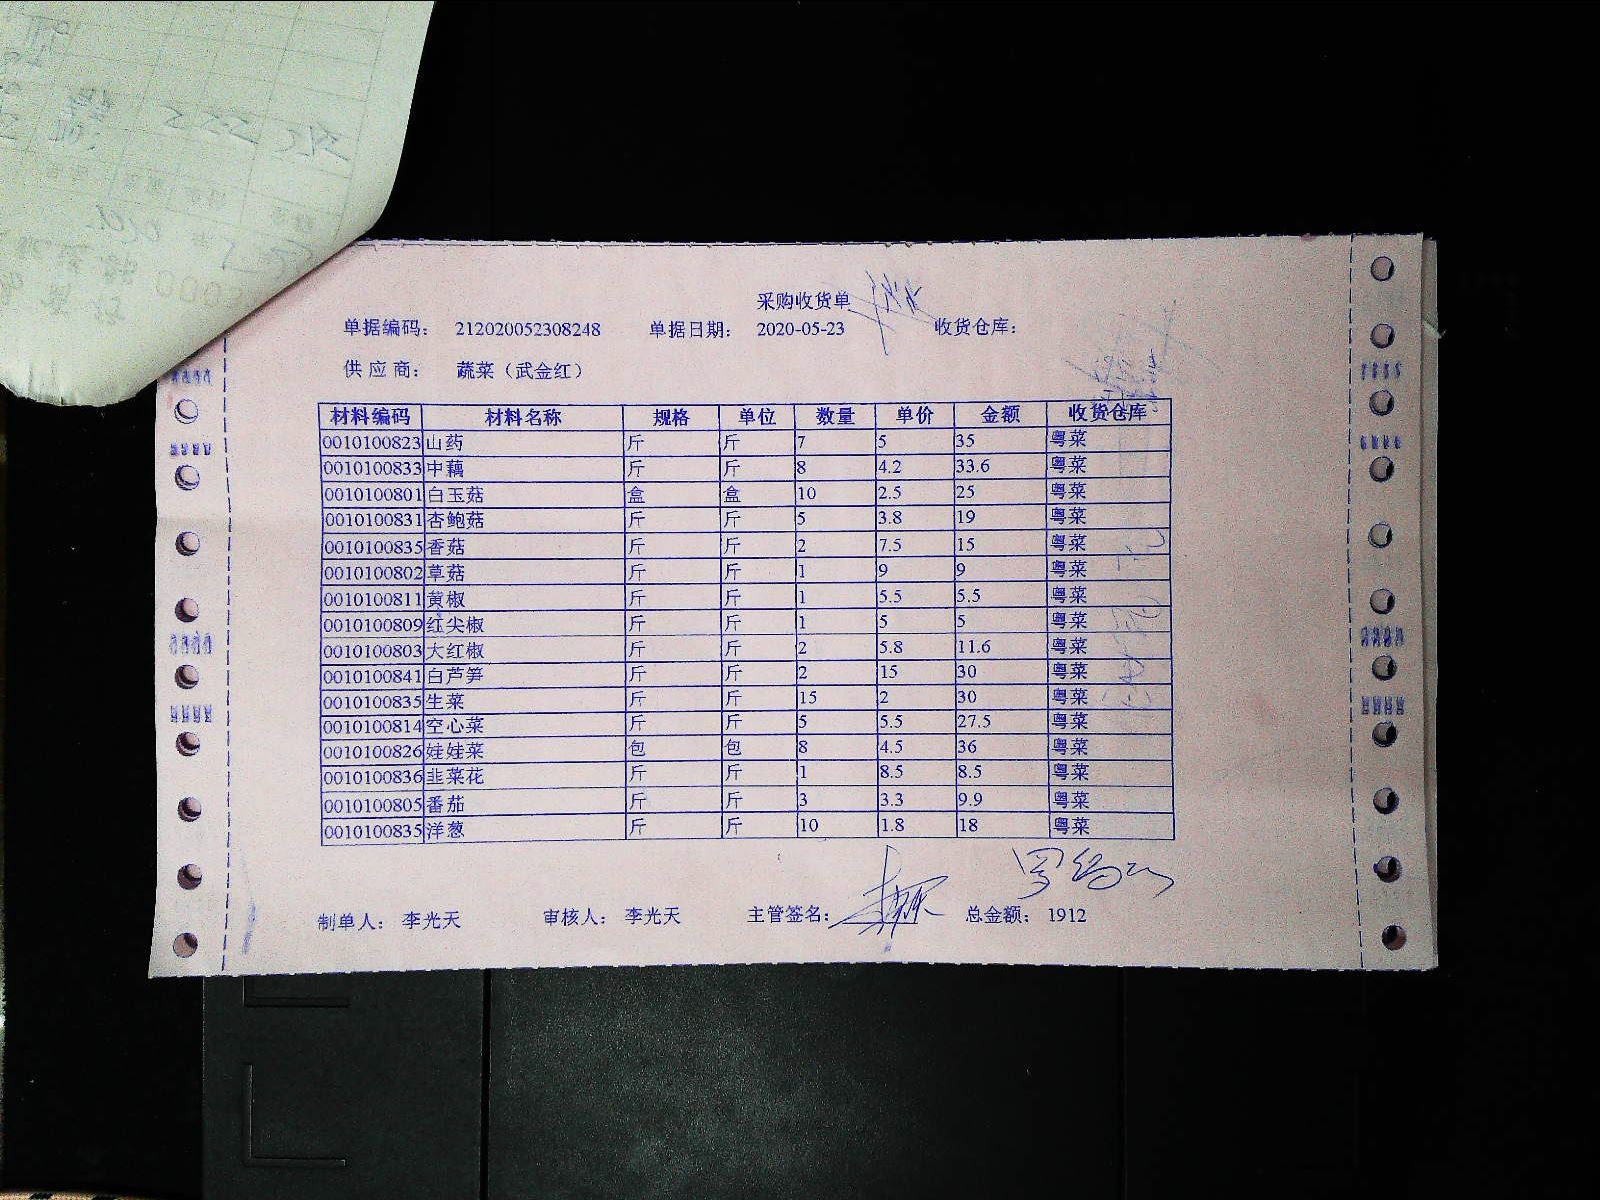 采购收货单
单据编码： 212020052308248 单据日期： 2020-05-23 收货仓库：
供应商： 蔬菜（武金红）
材料编码 材料名称 规格 单位 数量 单价 金额 收货仓库
0010100823 山药 斤 斤 7 5 35 粤菜
0010100833 中藕 斤 斤 8 4.2 33.6 粤菜
0010100801 白玉菇 盒 盒 10 2.5 25 粤菜
0010100831 杏鲍菇 斤 斤 5 3.8 19 粤菜
0010100835 香菇 斤 斤 2 7.5 15 粤菜
0010100802 草菇 斤 斤 1 9 9 粤菜
0010100811 黄椒 斤 斤 1 5.5 5.5 粤菜
0010100809 红尖椒 斤 斤 1 5 5 粤菜
0010100803 大红椒 斤 斤 2 5.8 11.6 粤菜
0010100841 白芦笋 斤 斤 2 15 30 粤菜
0010100835 生菜 斤 斤 15 2 30 粤菜
0010100814 空心菜 斤 斤 5 5.5 27.5 粤菜
0010100826 娃娃菜 包 包 8 4.5 36 粤菜
0010100836 韭菜花 斤 斤 1 8.5 8.5 粤菜
0010100805 番茄 斤 斤 3 3.3 9.9 粤菜
0010100835 洋葱 斤 斤 10 1.8 18 粤菜
制单人： 李光天 审核人： 李光天 主管签名： 总金额： 1912